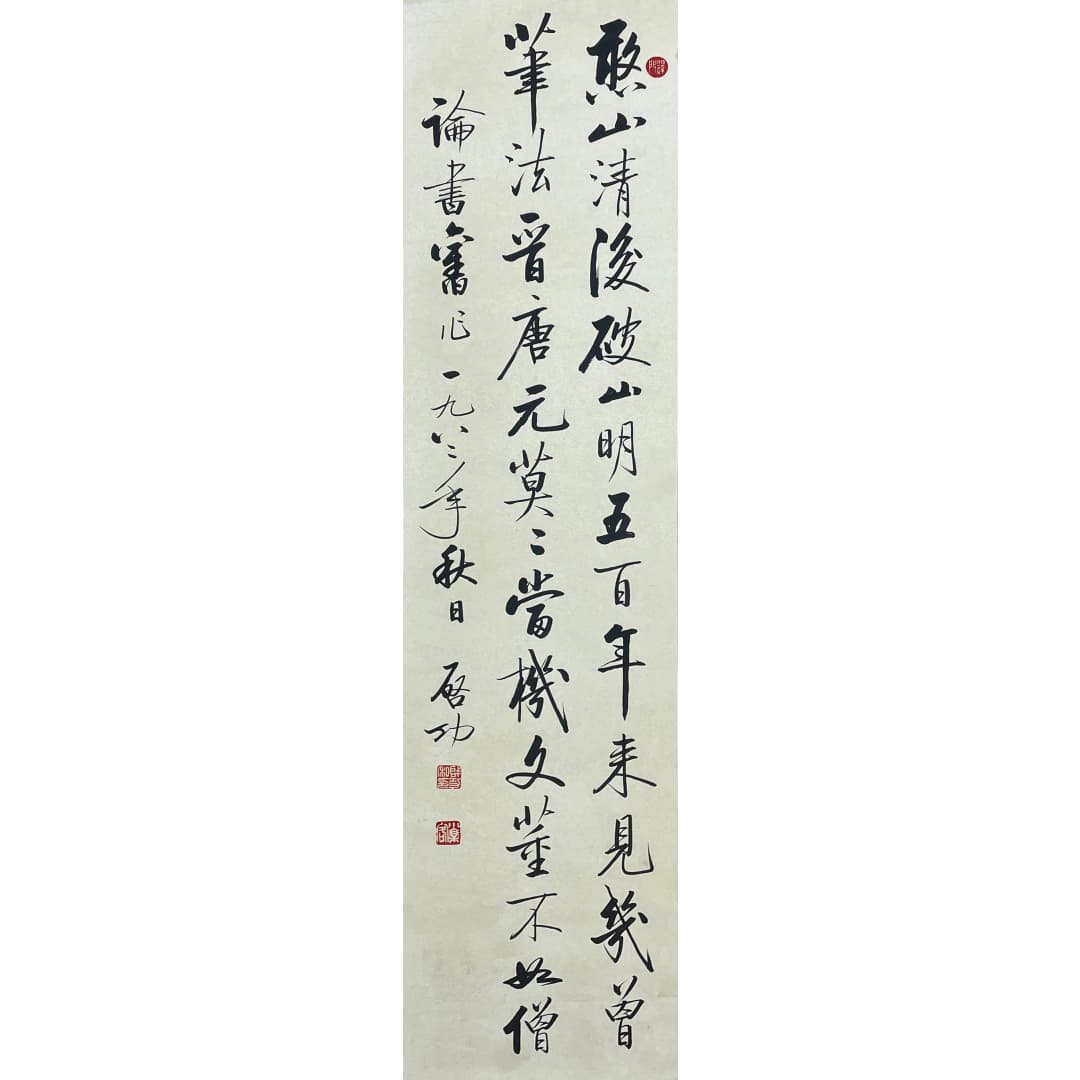 憨山清後破山明五百年来見幾曾
筆法晉唐元莫〻當機文董不如僧
論書舊作一九八二年秋日 啓功